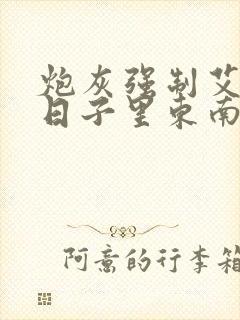 炮灰强制艾
日子里东南
阿意的行李箱